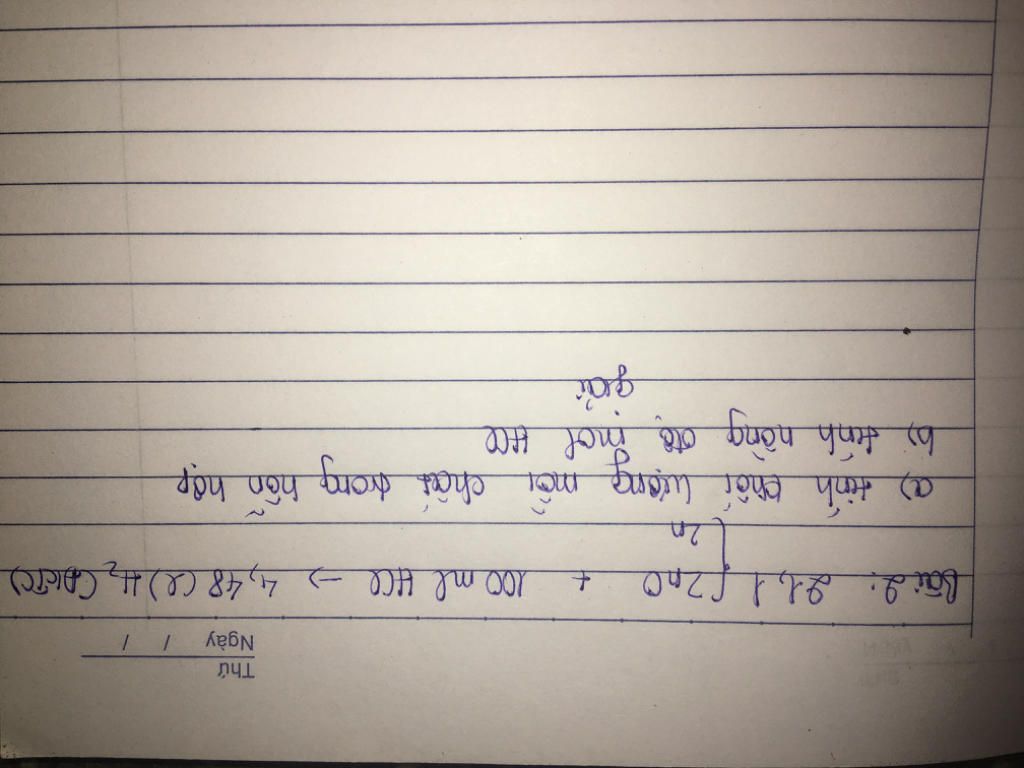 Thứ
Ngày / /
Bài 2: 21,1 { ZnO + 100 ml HCl → 4,48 (l) H2 (ĐKTC)
Zn
a) tính khối lượng mỗi chất trong hỗn hợp
b) tính nồng độ mol HCl
giải